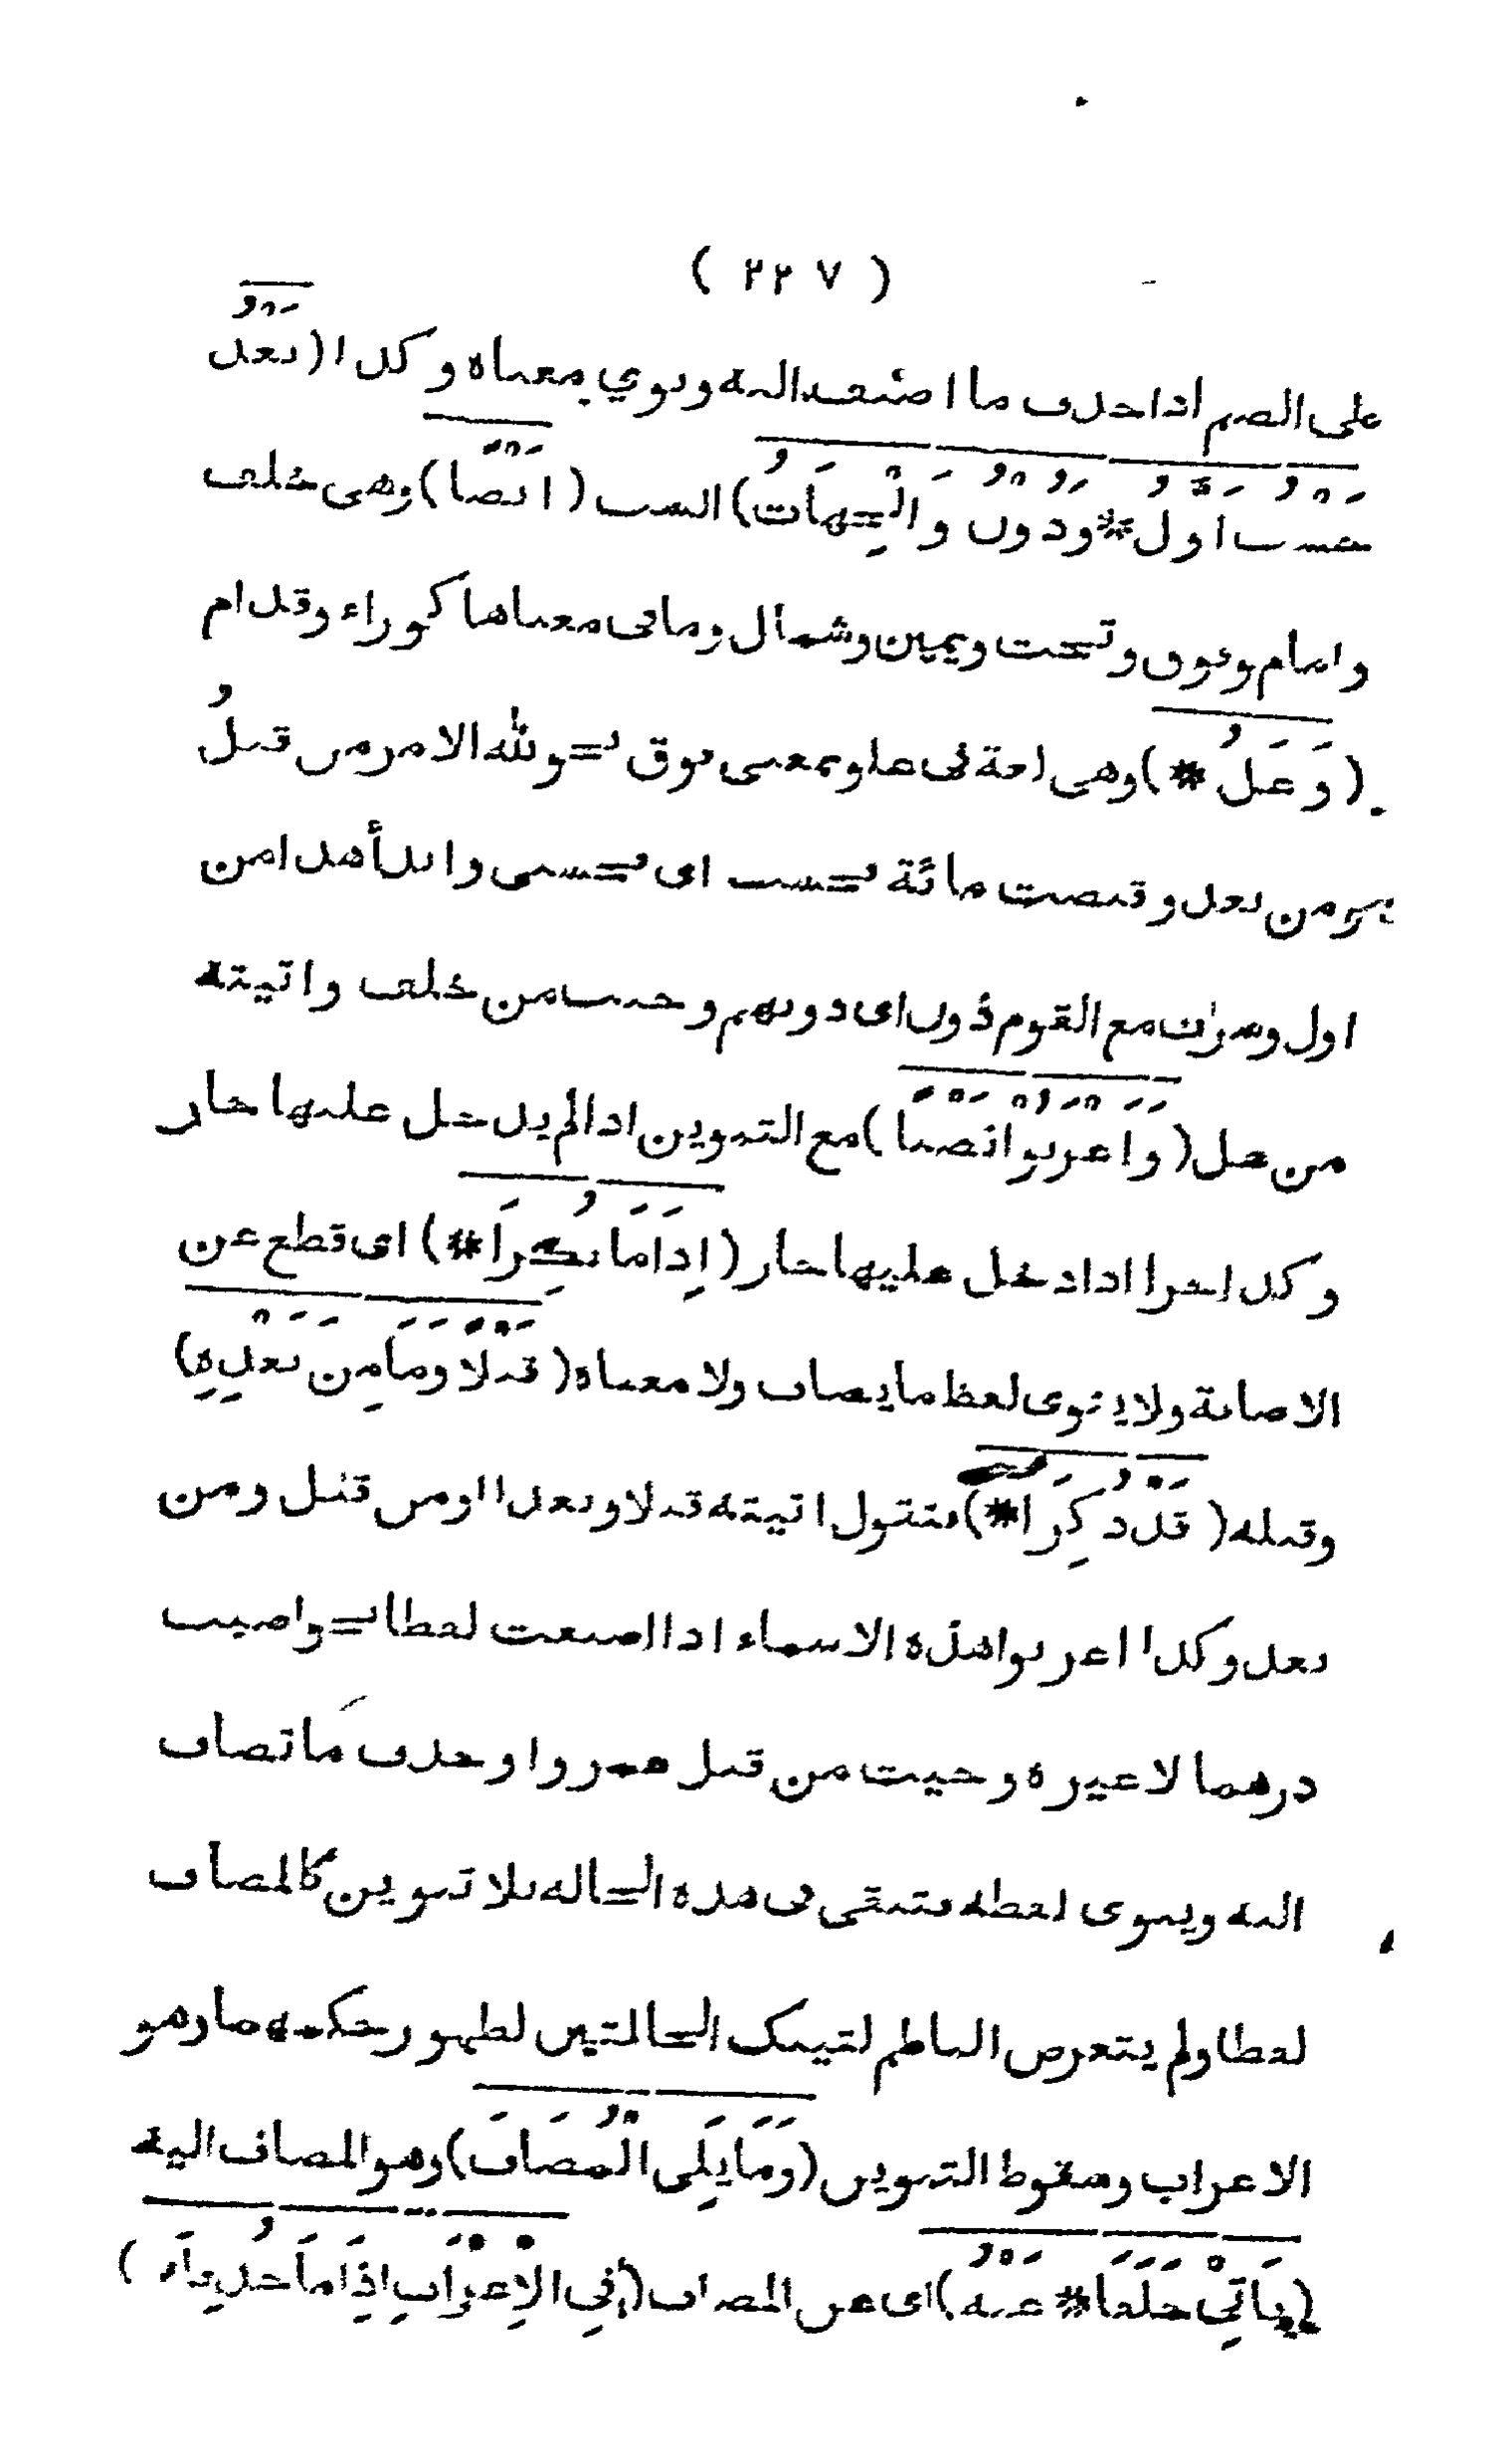 ( ٢٢٧ )
على الضم اذا حذف ما اضيف اليه ونوي بمعناه وكذا (بَعْدُ
حَسْبُ اَوَّلُ * وَدُوْنُ وَالْجِهَاتُ) الست (اَيْضًا) وهى خلف
وامام وفوق وتحت ويمين وشمال وما فى معناها كوراء وقدام
(وَعَلُ *) وهى لغة فى علو بمعنى فوق نحو لله الامر من قبلُ
ومن بعد وقبضت مائة فحسب اى فحسبى وابدأ هذا من
اول وسرت مع القوم دون اى دونهم وجئت من خلف واتيته
من عل (وَاَعْرَبُوْا نَصْبًا) مع التنوين اذا لم يدخل عليها جار
وكذا جرا اذا دخل عليها جار (اِذَا مَا نُكِّرَا *) اى قطع عن
الاضافة ولا ينوى لفظ ما يضاف ولا معناه (قَبْلًا وَمَا مِنْ بَعْدِهِ)
وقبله (قَدْ ذُكِرَا *) فتقول اتيته قبلا وبعدا او من قبل ومن
بعد وكذا اعربوا هذه الاسماء اذا اضيفت لفظا نحو اصبت
درهما لا غيره وجيت من قبل عمرو او حذف ما تضاف
اليه وينوى لفظه فتبقى فى هذه الحاله بلا تنوين كالمضاف
لفظا ولم يتعرض الناظم لتينك الحالتين لظهور حكمهما وهو
الاعراب وسقوط التنوين (وَمَا يَلِى الْمُضَافَ) وهو المضاف اليه
(يَأْتِيْ خَلَفَا * عَنْهُ) اى عن المضاف (فِي الْاِعْرَابِ اِذَا مَا حُذِفَا)